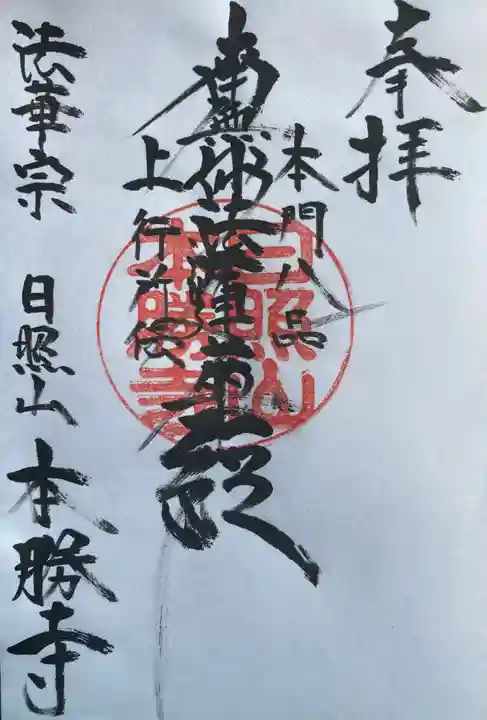 奉拝
本門八品
南無妙法蓮華経
上行所伝
日照山
本勝寺
法華宗 日照山 本勝寺